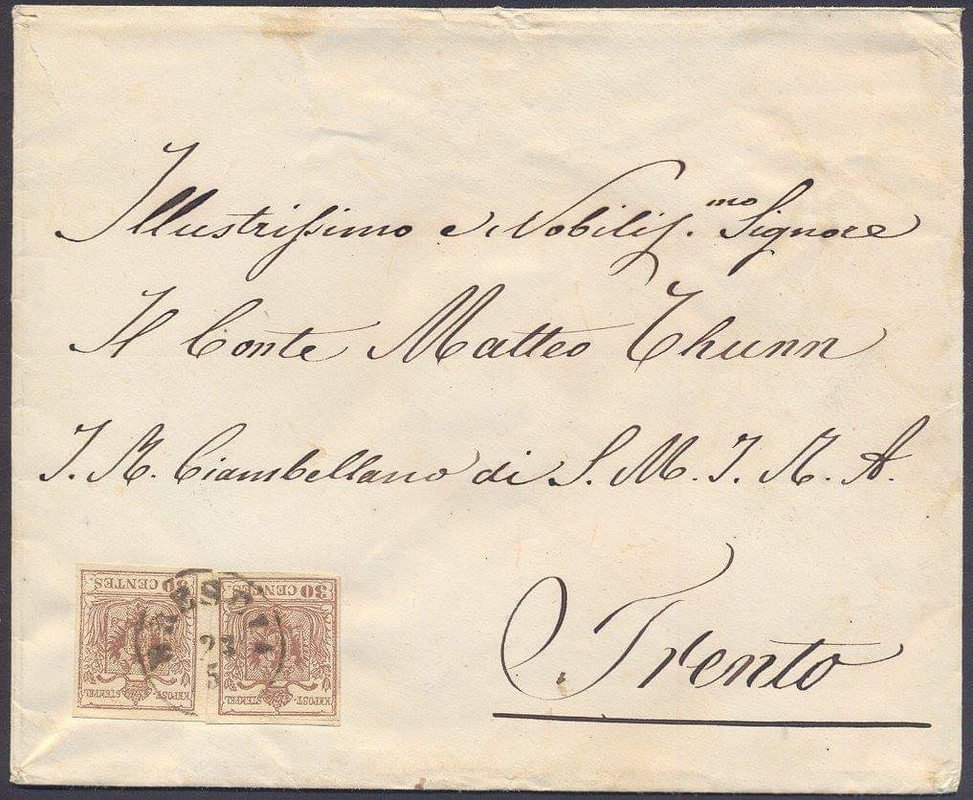 Illustrissimo e Nobiliss.mo Signore
Il Conte Matteo Thunn
I. R. Ciambellano di S. M. I. R. A.
Trento
30 CENTES.
KKPOST-STEMPEL
30 CENTES.
KKPOST-STEMPEL
23
5